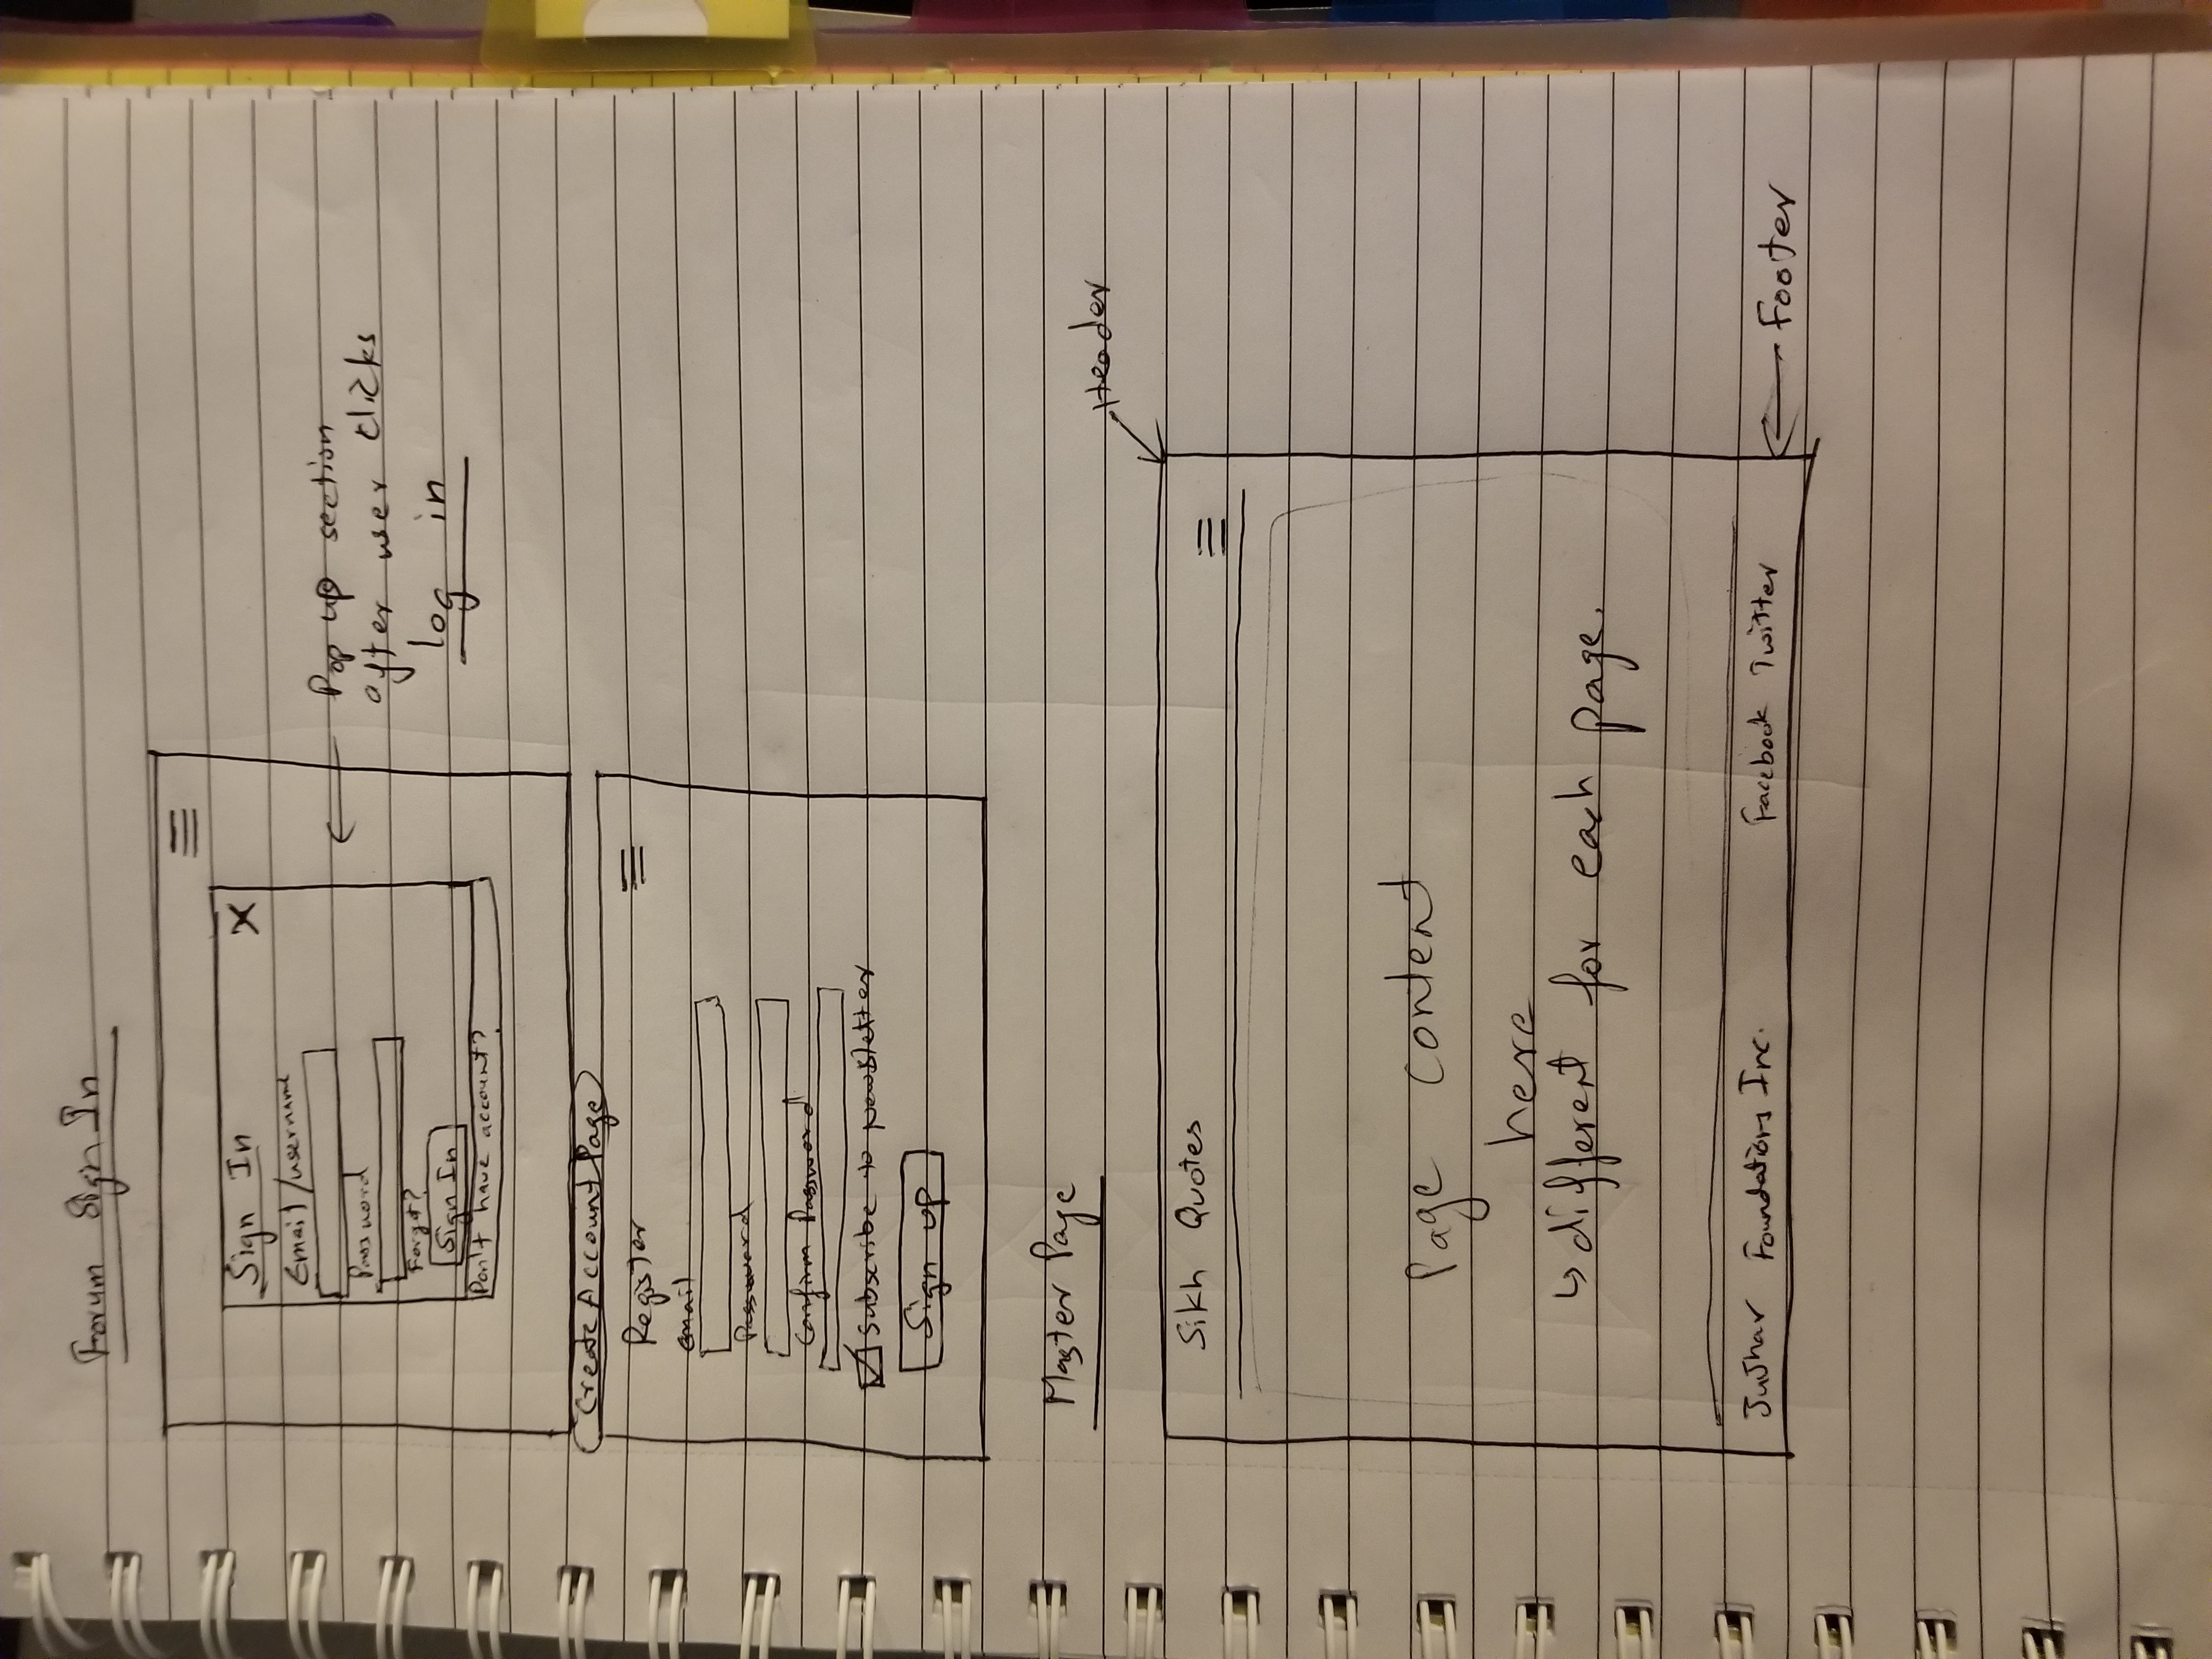 Forum Sign In
Sign In X
Email/username
Password
Forgot?
Sign In
Don't have account?
Pop up section
after user clicks
log in
Create Account Page
Register
email
Password
Confirm Password
Subscribe to Newsletter
Sign up
Master Page
Header
Sikh Quotes
Page content
here
↳ different for each page.
JuJhar Foundations Inc. Facebook Twitter
Footer